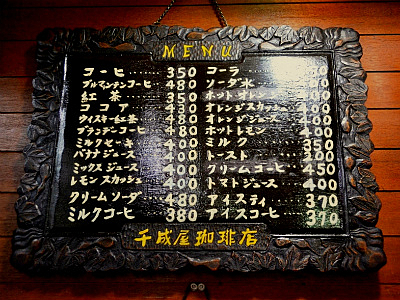 MENU
コーヒ 350
ブルマンテンコーヒ 480
紅茶 350
ココア 430
ウイスキー紅茶 480
ブランデンコーヒ 480
ミルクセーキ 400
バナナジュース 400
ミックスジュース 400
レモンスカッシュ 400
クリームソーダ 480
ミルクコーヒ 380
コーラ
ソーダ水
ホットオレンジ
オレンジスカッシュ 400
オレンジジュース 400
ホットレモン 400
ミルク 350
トースト
クリームコーヒ 450
トマトジュース 400
アイスティ 370
アイスコーヒ 370
千成屋珈琲店